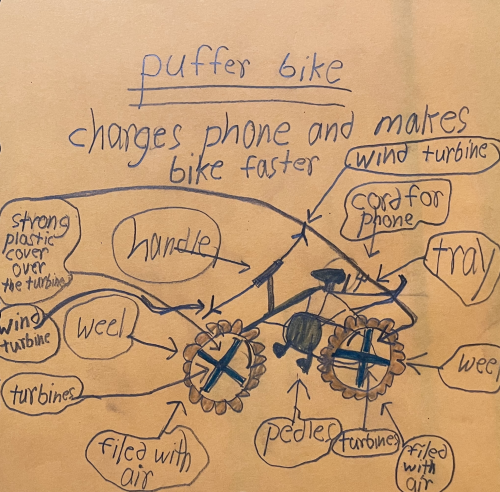 puffer bike
charges phone and makes
bike faster
wind turbine
cord for
phone
strong
plastic
cover
over
the turbine
handle
tray
wind
turbine
weel
weel
turbines
filed with
air
pedles
turbines
filed
with
air